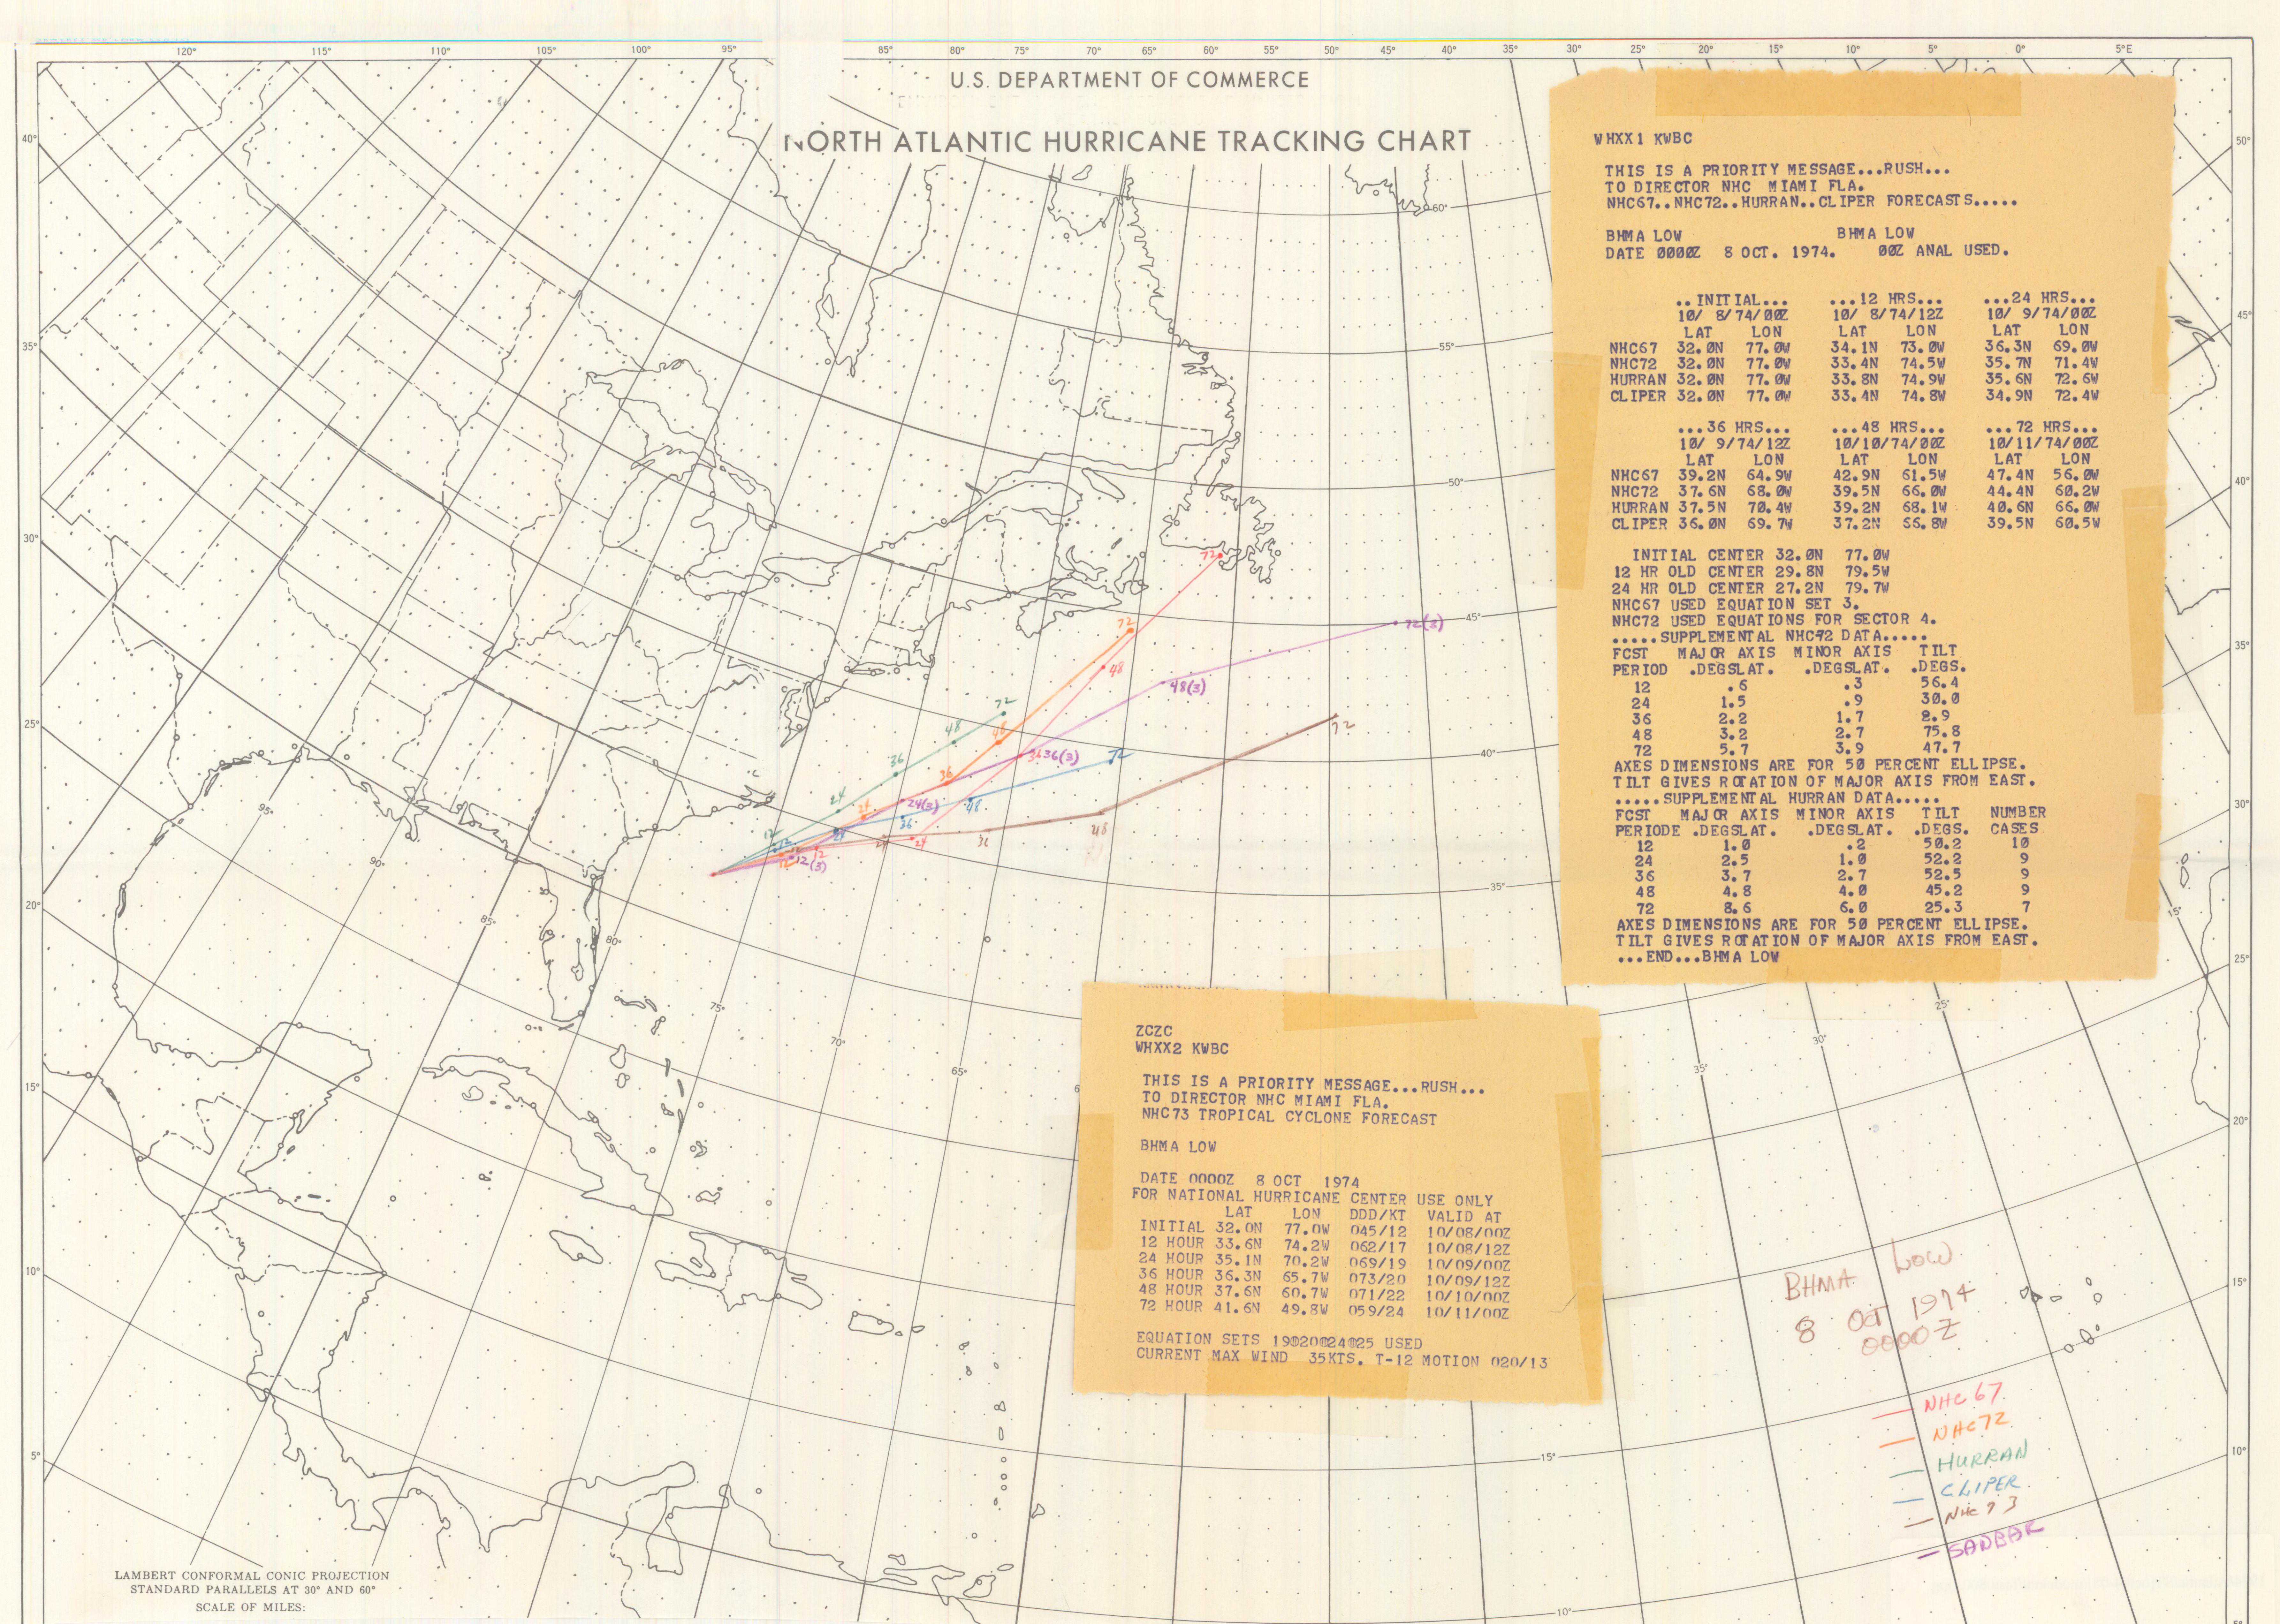 120° 115° 110° 105° 100° 95° 85° 80° 75° 70° 65° 60° 55° 50° 45° 40° 35° 30° 25° 20° 15° 10° 5° 0° 5°E
U.S. DEPARTMENT OF COMMERCE
NORTH ATLANTIC HURRICANE TRACKING CHART
40°
35°
30°
25°
20°
15°
10°
5°
50°
45°
40°
35°
30°
25°
20°
15°
10°
60°
55°
50°
45°
40°
35°
15°
10°
95°
90°
85°
80°
75°
70°
65°
35°
30°
25°
15°
WHXX1 KWBC
THIS IS A PRIORITY MESSAGE...RUSH...
TO DIRECTOR NHC MIAMI FLA.
NHC67..NHC72..HURRAN..CLIPER FORECASTS.....
BHMA LOW BHMA LOW
DATE 0000Z 8 OCT. 1974. 00Z ANAL USED.
..INITIAL... ...12 HRS... ...24 HRS...
10/ 8/74/00Z 10/ 8/74/12Z 10/ 9/74/00Z
LAT LON LAT LON LAT LON
NHC67 32.0N 77.0W 34.1N 73.0W 36.3N 69.0W
NHC72 32.0N 77.0W 33.4N 74.5W 35.7N 71.4W
HURRAN 32.0N 77.0W 33.8N 74.9W 35.6N 72.6W
CLIPER 32.0N 77.0W 33.4N 74.8W 34.9N 72.4W
...36 HRS... ...48 HRS... ...72 HRS...
10/ 9/74/12Z 10/10/74/00Z 10/11/74/00Z
LAT LON LAT LON LAT LON
NHC67 39.2N 64.9W 42.9N 61.5W 47.4N 56.0W
NHC72 37.6N 68.0W 39.5N 66.0W 44.4N 60.2W
HURRAN 37.5N 70.4W 39.2N 68.1W 40.6N 66.0W
CLIPER 36.0N 69.7W 37.2N 66.8W 39.5N 60.5W
INITIAL CENTER 32.0N 77.0W
12 HR OLD CENTER 29.8N 79.5W
24 HR OLD CENTER 27.2N 79.7W
NHC67 USED EQUATION SET 3.
NHC72 USED EQUATIONS FOR SECTOR 4.
.....SUPPLEMENTAL NHC72 DATA.....
FCST MAJOR AXIS MINOR AXIS TILT
PERIOD .DEGSLAT. .DEGSLAT. .DEGS.
12 .6 .3 56.4
24 1.5 .9 30.0
36 2.2 1.7 8.9
48 3.2 2.7 75.8
72 5.7 3.9 47.7
AXES DIMENSIONS ARE FOR 50 PERCENT ELLIPSE.
TILT GIVES ROTATION OF MAJOR AXIS FROM EAST.
.....SUPPLEMENTAL HURRAN DATA.....
FCST MAJOR AXIS MINOR AXIS TILT NUMBER
PERIODE .DEGSLAT. .DEGSLAT. .DEGS. CASES
12 1.0 .2 50.2 10
24 2.5 1.0 52.2 9
36 3.7 2.7 52.5 9
48 4.8 4.0 45.2 9
72 8.6 6.0 25.3 7
AXES DIMENSIONS ARE FOR 50 PERCENT ELLIPSE.
TILT GIVES ROTATION OF MAJOR AXIS FROM EAST.
...END...BHMA LOW
72
72
72(3)
48
48(3)
72
48
36
24
12
48
36
24
36
36(3)
24(3)
12(3)
72
48
36
24
12
12
72
48
36
24
ZCZC
WHXX2 KWBC
THIS IS A PRIORITY MESSAGE...RUSH...
TO DIRECTOR NHC MIAMI FLA.
NHC73 TROPICAL CYCLONE FORECAST
BHMA LOW
DATE 0000Z 8 OCT 1974
FOR NATIONAL HURRICANE CENTER USE ONLY
LAT LON DDD/KT VALID AT
INITIAL 32.0N 77.0W 045/12 10/08/00Z
12 HOUR 33.6N 74.2W 062/17 10/08/12Z
24 HOUR 35.1N 70.2W 069/19 10/09/00Z
36 HOUR 36.3N 65.7W 073/20 10/09/12Z
48 HOUR 37.6N 60.7W 071/22 10/10/00Z
72 HOUR 41.6N 49.8W 059/24 10/11/00Z
EQUATION SETS 19@20@24@25 USED
CURRENT MAX WIND 35KTS. T-12 MOTION 020/13
BHMA LOW
8 OCT 1974
0000Z
NHC 67
NHC72
HURRAN
CLIPER
NHC73
SANBAR
LAMBERT CONFORMAL CONIC PROJECTION
STANDARD PARALLELS AT 30° AND 60°
SCALE OF MILES: